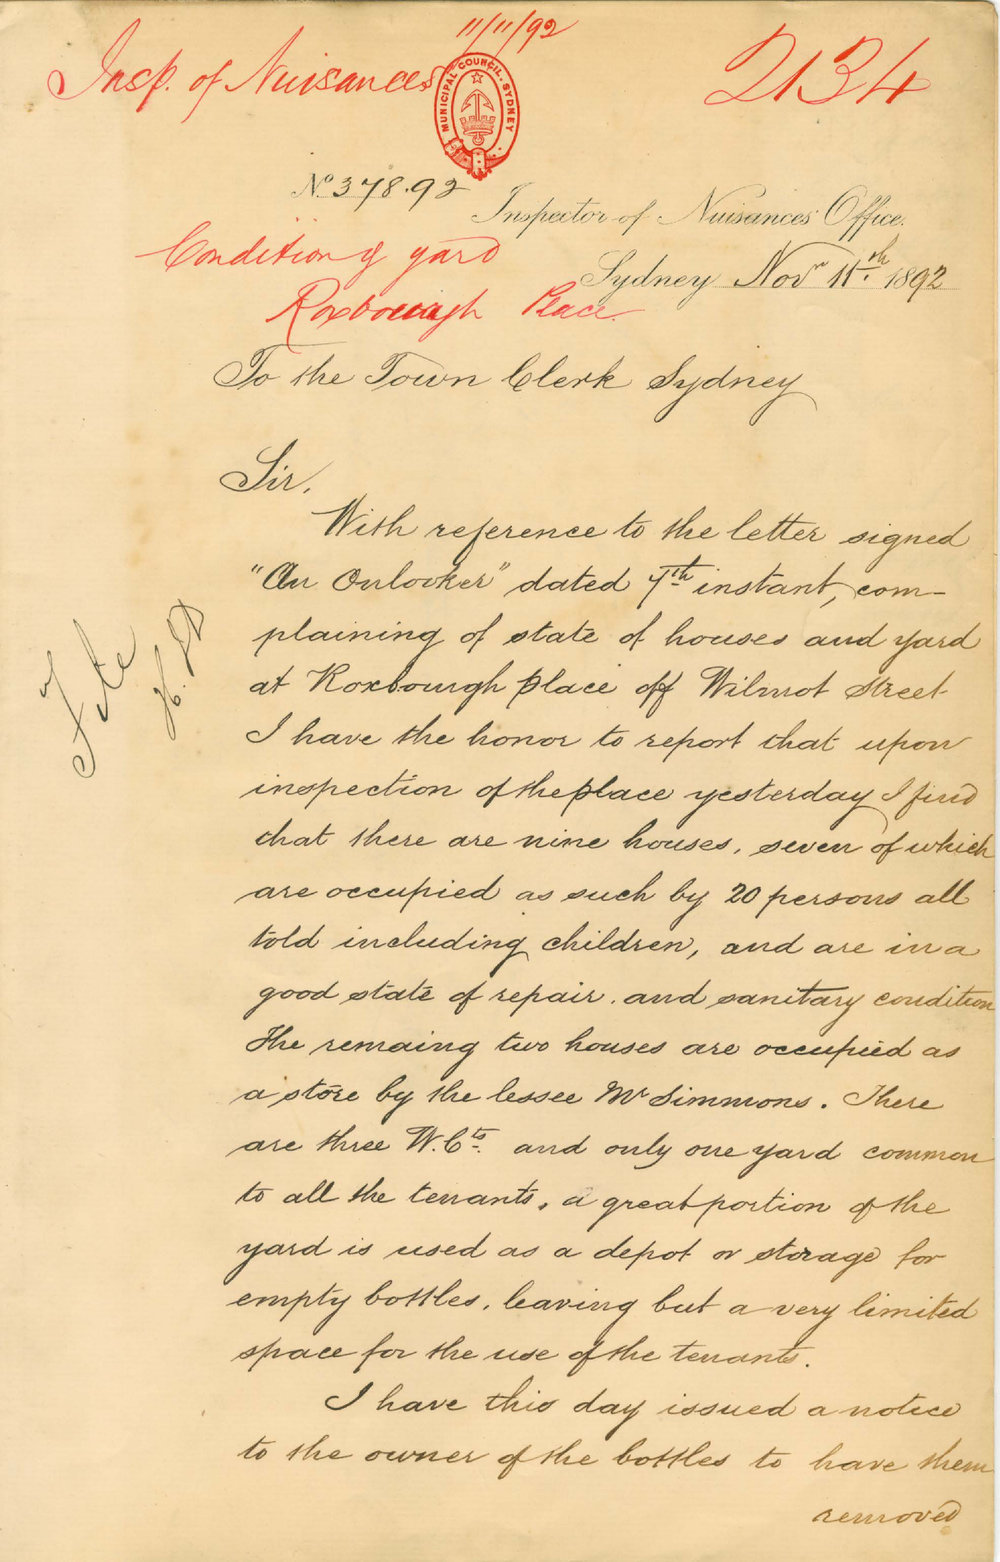 11/11/92
Insp. of Nuisances
2134
MUNICIPAL COUNCIL. SYDNEY
No. 378.92
Inspector of Nuisances Office.
Condition of yard
Sydney Novr 11th 1892
Roxborough Place
To the Town Clerk Sydney
Sir,
With reference to the letter signed
"An Onlooker" dated 7th instant, com-
plaining of state of houses and yard
at Roxborough place off Wilmot Street
I have the honor to report that upon
inspection of the place yesterday I find
that there are nine houses, seven of which
are occupied as such by 20 persons all
told including children, and are in a
good state of repair. and sanitary condition
The remaing two houses are occupied as
a store by the lessee Mr Simmons. There
are three W.Cts. and only one yard common
to all the tenants, a great portion of the
yard is used as a depot or storage for
empty bottles, leaving but a very limited
space for the use of the tenants.
I have this day issued a notice
to the owner of the bottles to have them
removed
File